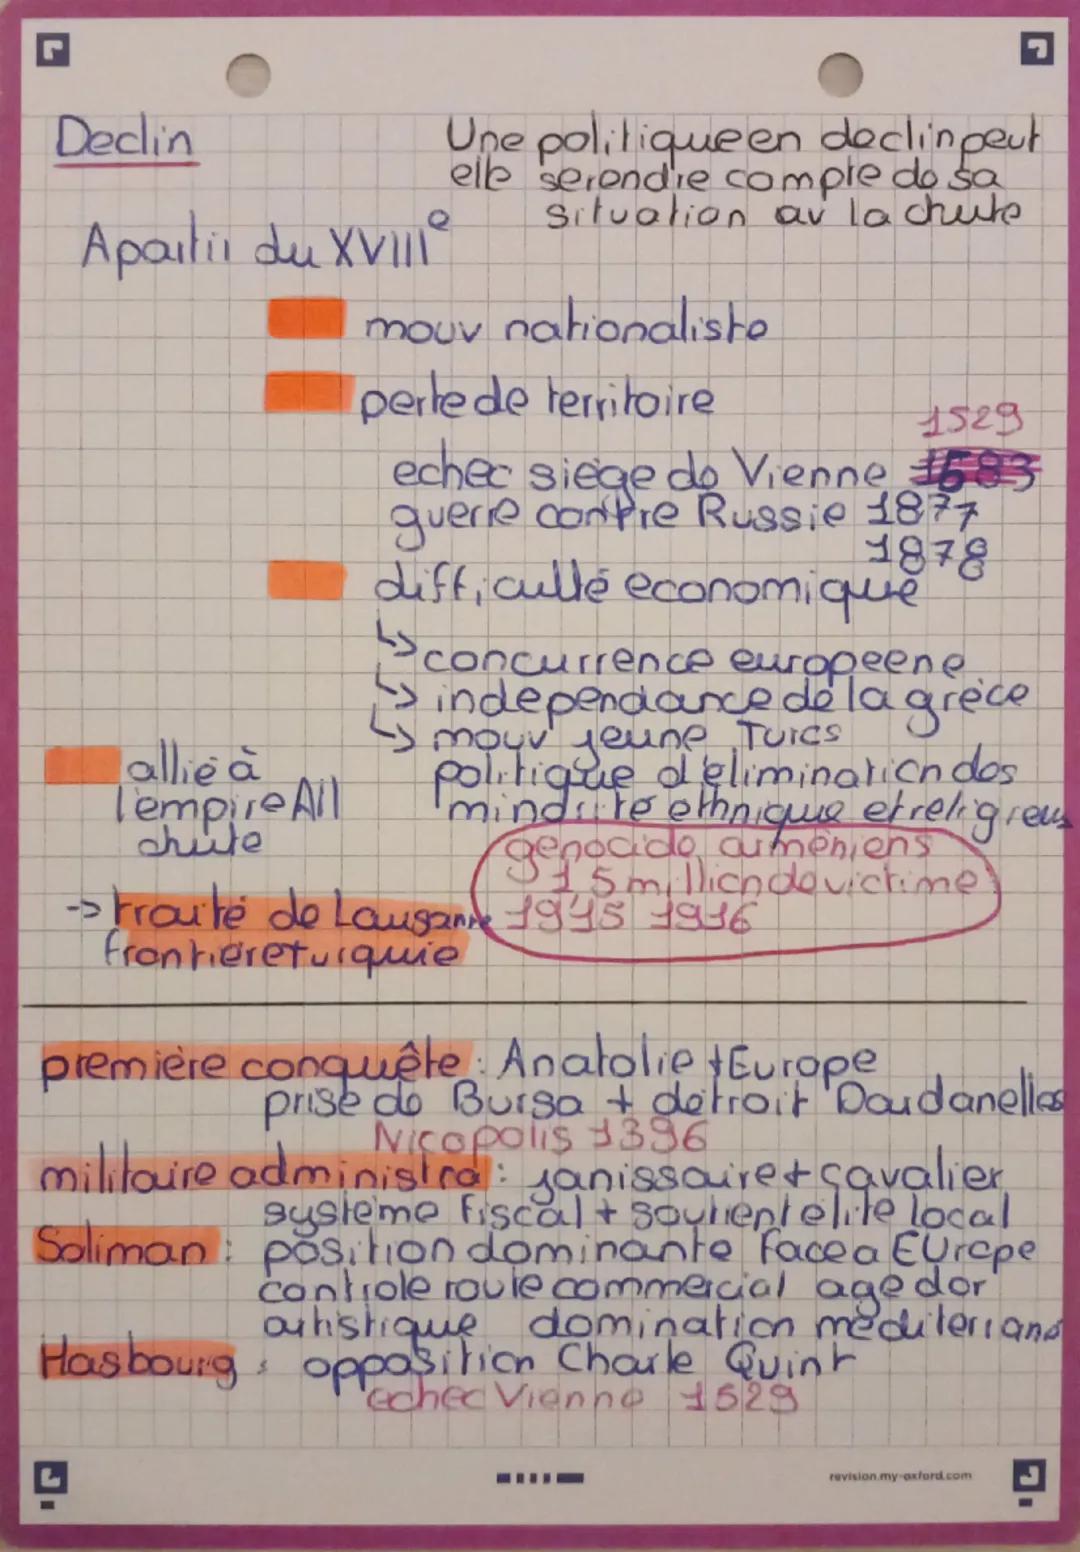 Declin
Une politique en declin peut
elle se rendre compte de sa
situation av la chute
A partir du XVIIIe
mouv nationaliste
perte de territoire
1529
echec siège de Vienne 1683
guerre contre Russie 1877
1878
difficulté economique
↳ concurrence europeene
↳ independance de la grèce
↳ mouv jeune Turcs
politique d'elimination des
minorité ethnique et religieus
allié à
l'empire All
chute
genocide arméniens
1,5 million de victime
1915 1916
-> traité de Lausanne
frontière turquie
première conquête : Anatolie + Europe
prise de Bursa + détroit Dardanelles
Nicopolis 1396
militaire administra : janissaire + cavalier
système fiscal + soutient elite local
Soliman : position dominante face a Europe
controle route commercial age dor
artistique domination méditerrané
Hasbourg : opposition Charle Quint
echec Vienne 1529
revision.my-oxford.com